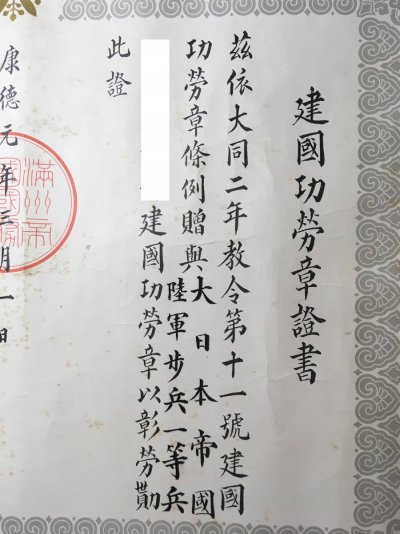 建國功勞章證書
茲依大同二年教令第十一號建國
功勞章條例贈與大日本帝國
陸軍步兵一等兵
建國功勞章以彰勞勩
此證
康德元年三月一日
滿洲帝